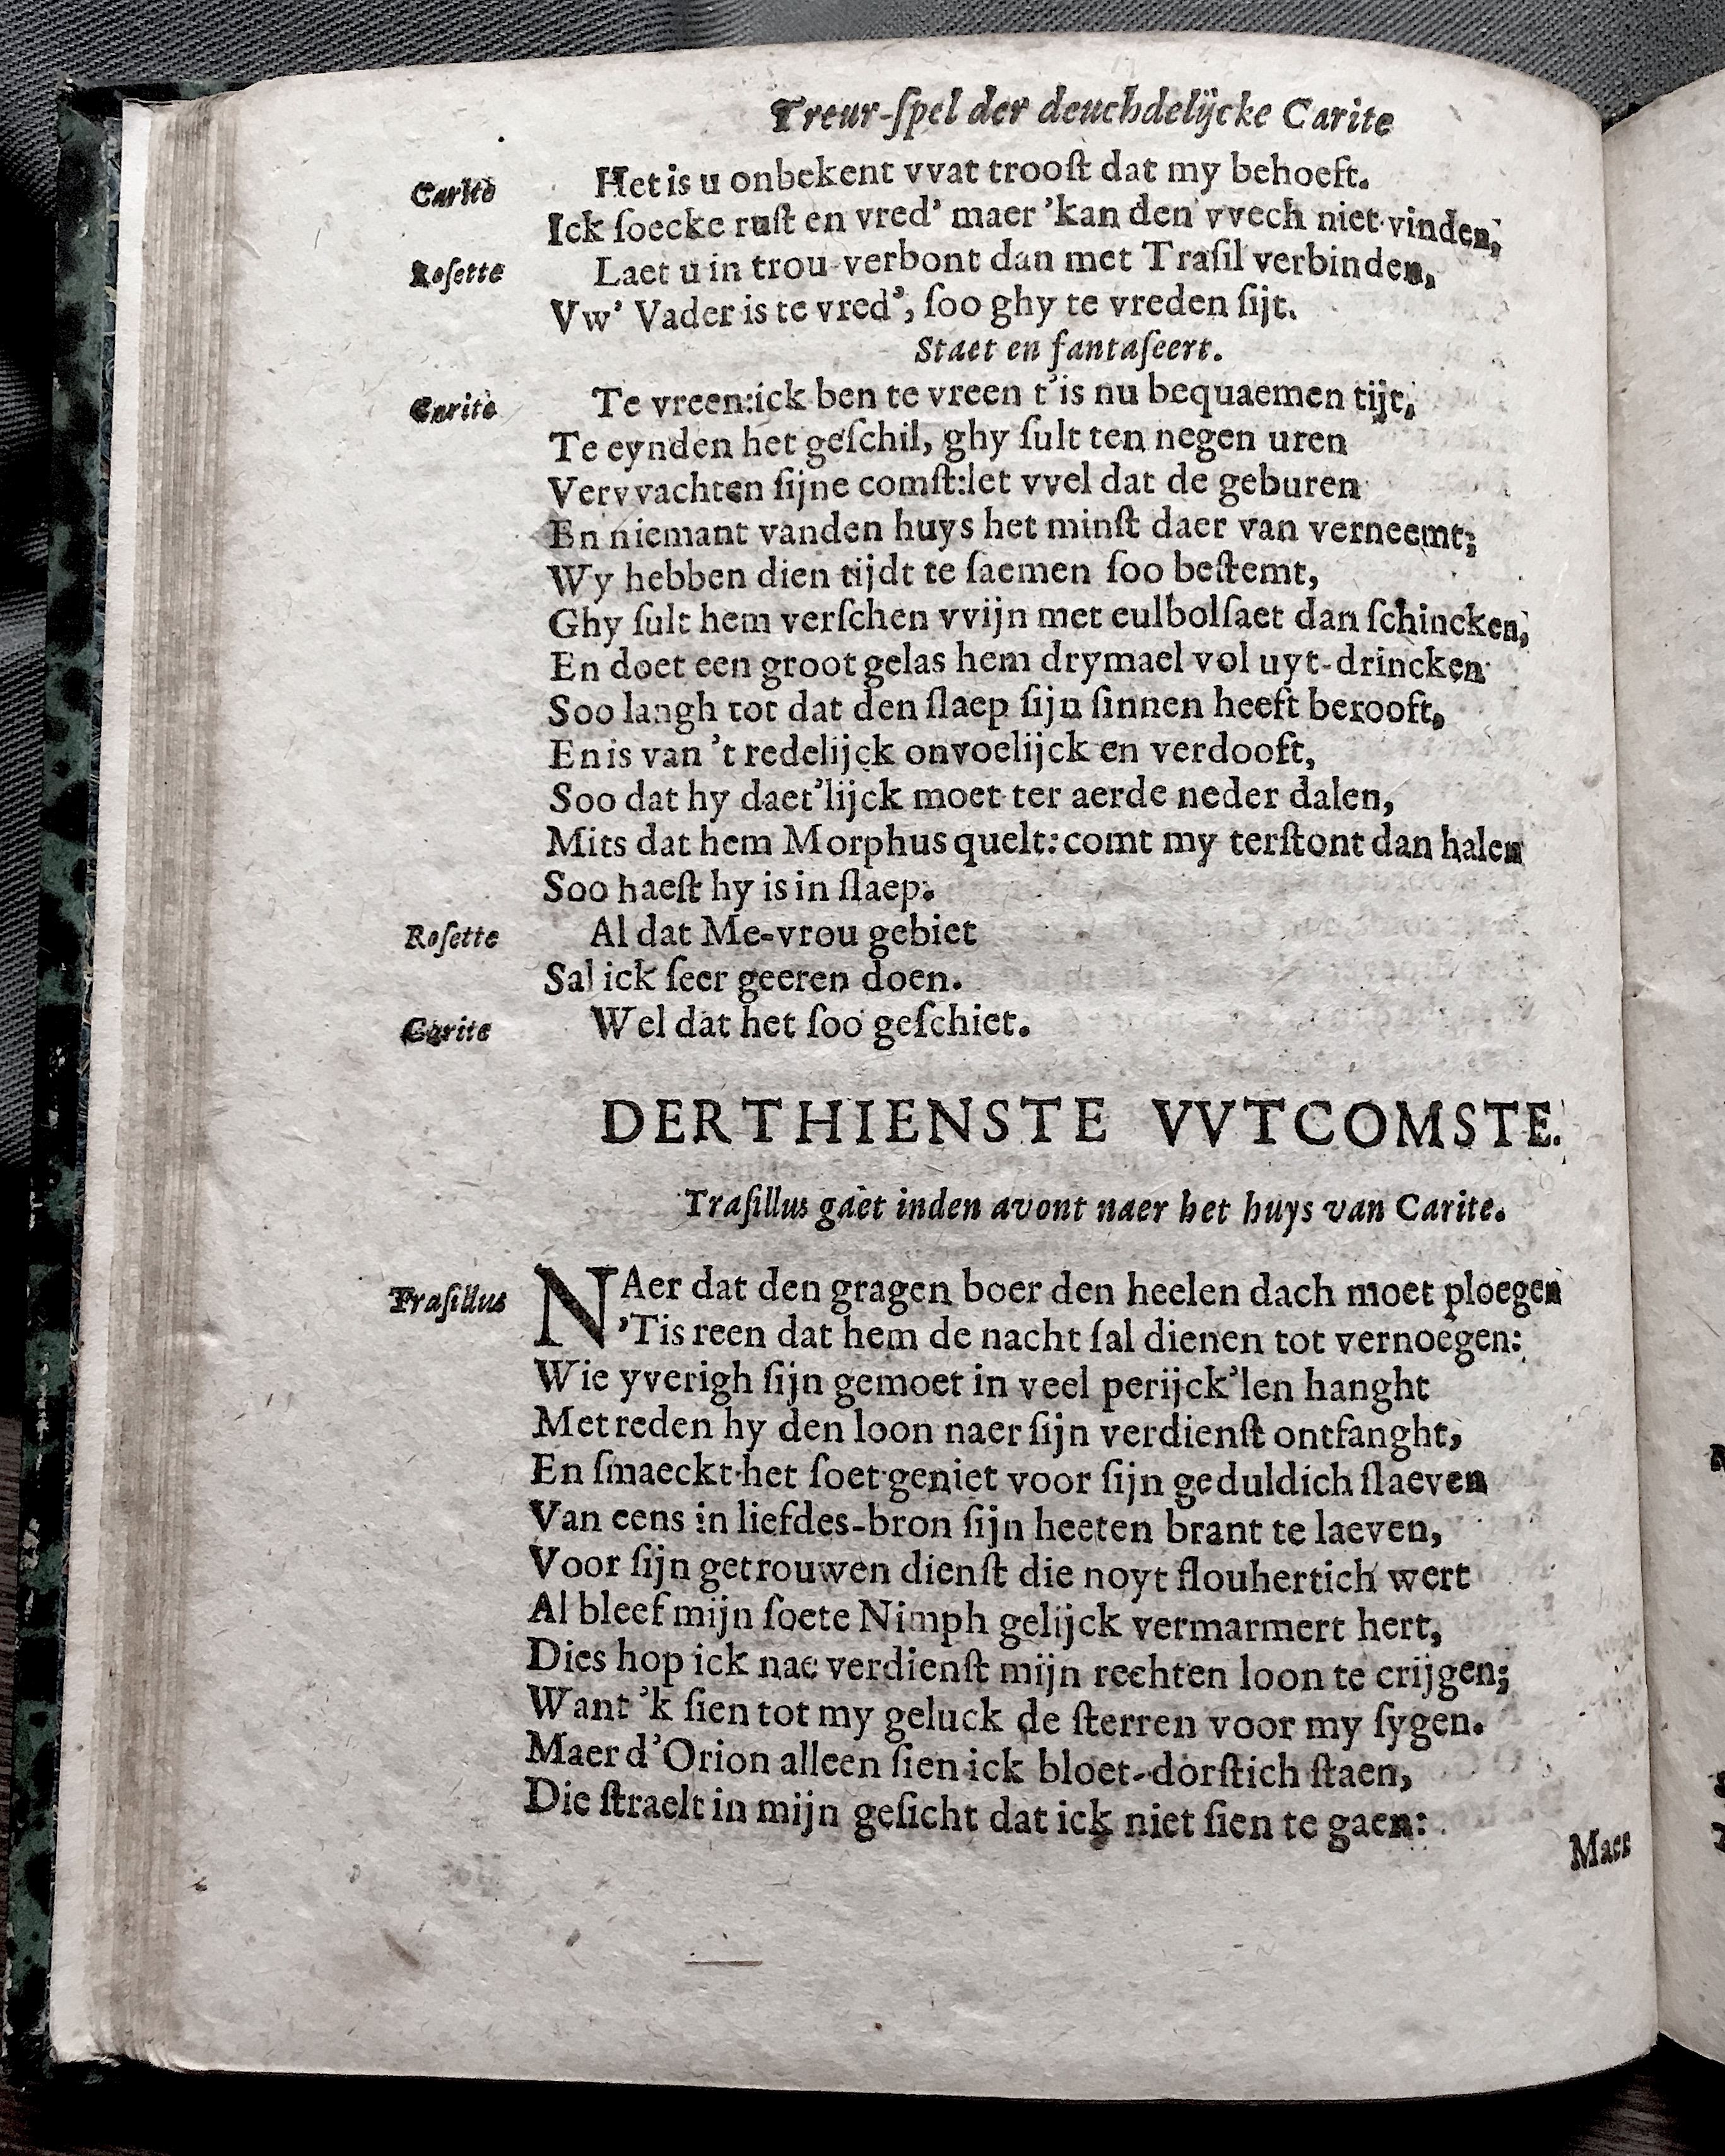 Treur-ſpel der deuchdelĳcke Carite
Carite Het is u onbekent vvat trooſt dat my behoeft.
Ick ſoecke ruſt en vred' maer 'kan den vvech niet vinden,
Roſette Laet u in trou-verbont dan met Traſil verbinden,
Vw' Vader is te vred', ſoo ghy te vreden ſijt.
Staet en fantaſeert.
Carite Te vreen: ick ben te vreen t'is nu bequaemen tijt,
Te eynden het geſchil, ghy ſult ten negen uren
Vervvachten ſijne comſt: let vvel dat de geburen
En niemant vanden huys het minſt daer van verneemt;
Wy hebben dien tijdt te ſaemen ſoo beſtemt,
Ghy ſult hem verſchen vvijn met eulbolſaet dan ſchincken,
En doet een groot gelas hem drymael vol uyt-drincken
Soo langh tot dat den ſlaep ſijn ſinnen heeft berooft,
En is van 't redelijck onvoelijck en verdooft,
Soo dat hy daet'lijck moet ter aerde neder dalen,
Mits dat hem Morphus quelt: comt my terſtont dan halen
Soo haeſt hy is in ſlaep.
Roſette Al dat Me-vrou gebiet
Sal ick ſeer geeren doen.
Carite Wel dat het ſoo geſchiet.
DERTHIENSTE VVTCOMSTE.
Traſillus gaet inden avont naer het huys van Carite.
Traſillus NAer dat den gragen boer den heelen dach moet ploegen
'Tis reen dat hem de nacht ſal dienen tot vernoegen:
Wie yverigh ſijn gemoet in veel perijck'len hanght
Met reden hy den loon naer ſijn verdienſt ontfanght,
En ſmaeckt het ſoet geniet voor ſijn geduldich ſlaeven
Van eens in liefdes-bron ſijn heeten brant te laeven,
Voor ſijn getrouwen dienſt die noyt flouhertich wert
Al bleef mijn ſoete Nimph gelijck vermarmert hert,
Dies hop ick nae verdienſt mijn rechten loon te crijgen;
Want 'k ſien tot my geluck de ſterren voor my ſygen.
Maer d'Orion alleen ſien ick bloet-dorſtich ſtaen,
Die ſtraelt in mijn geſicht dat ick niet ſien te gaen:
Maer